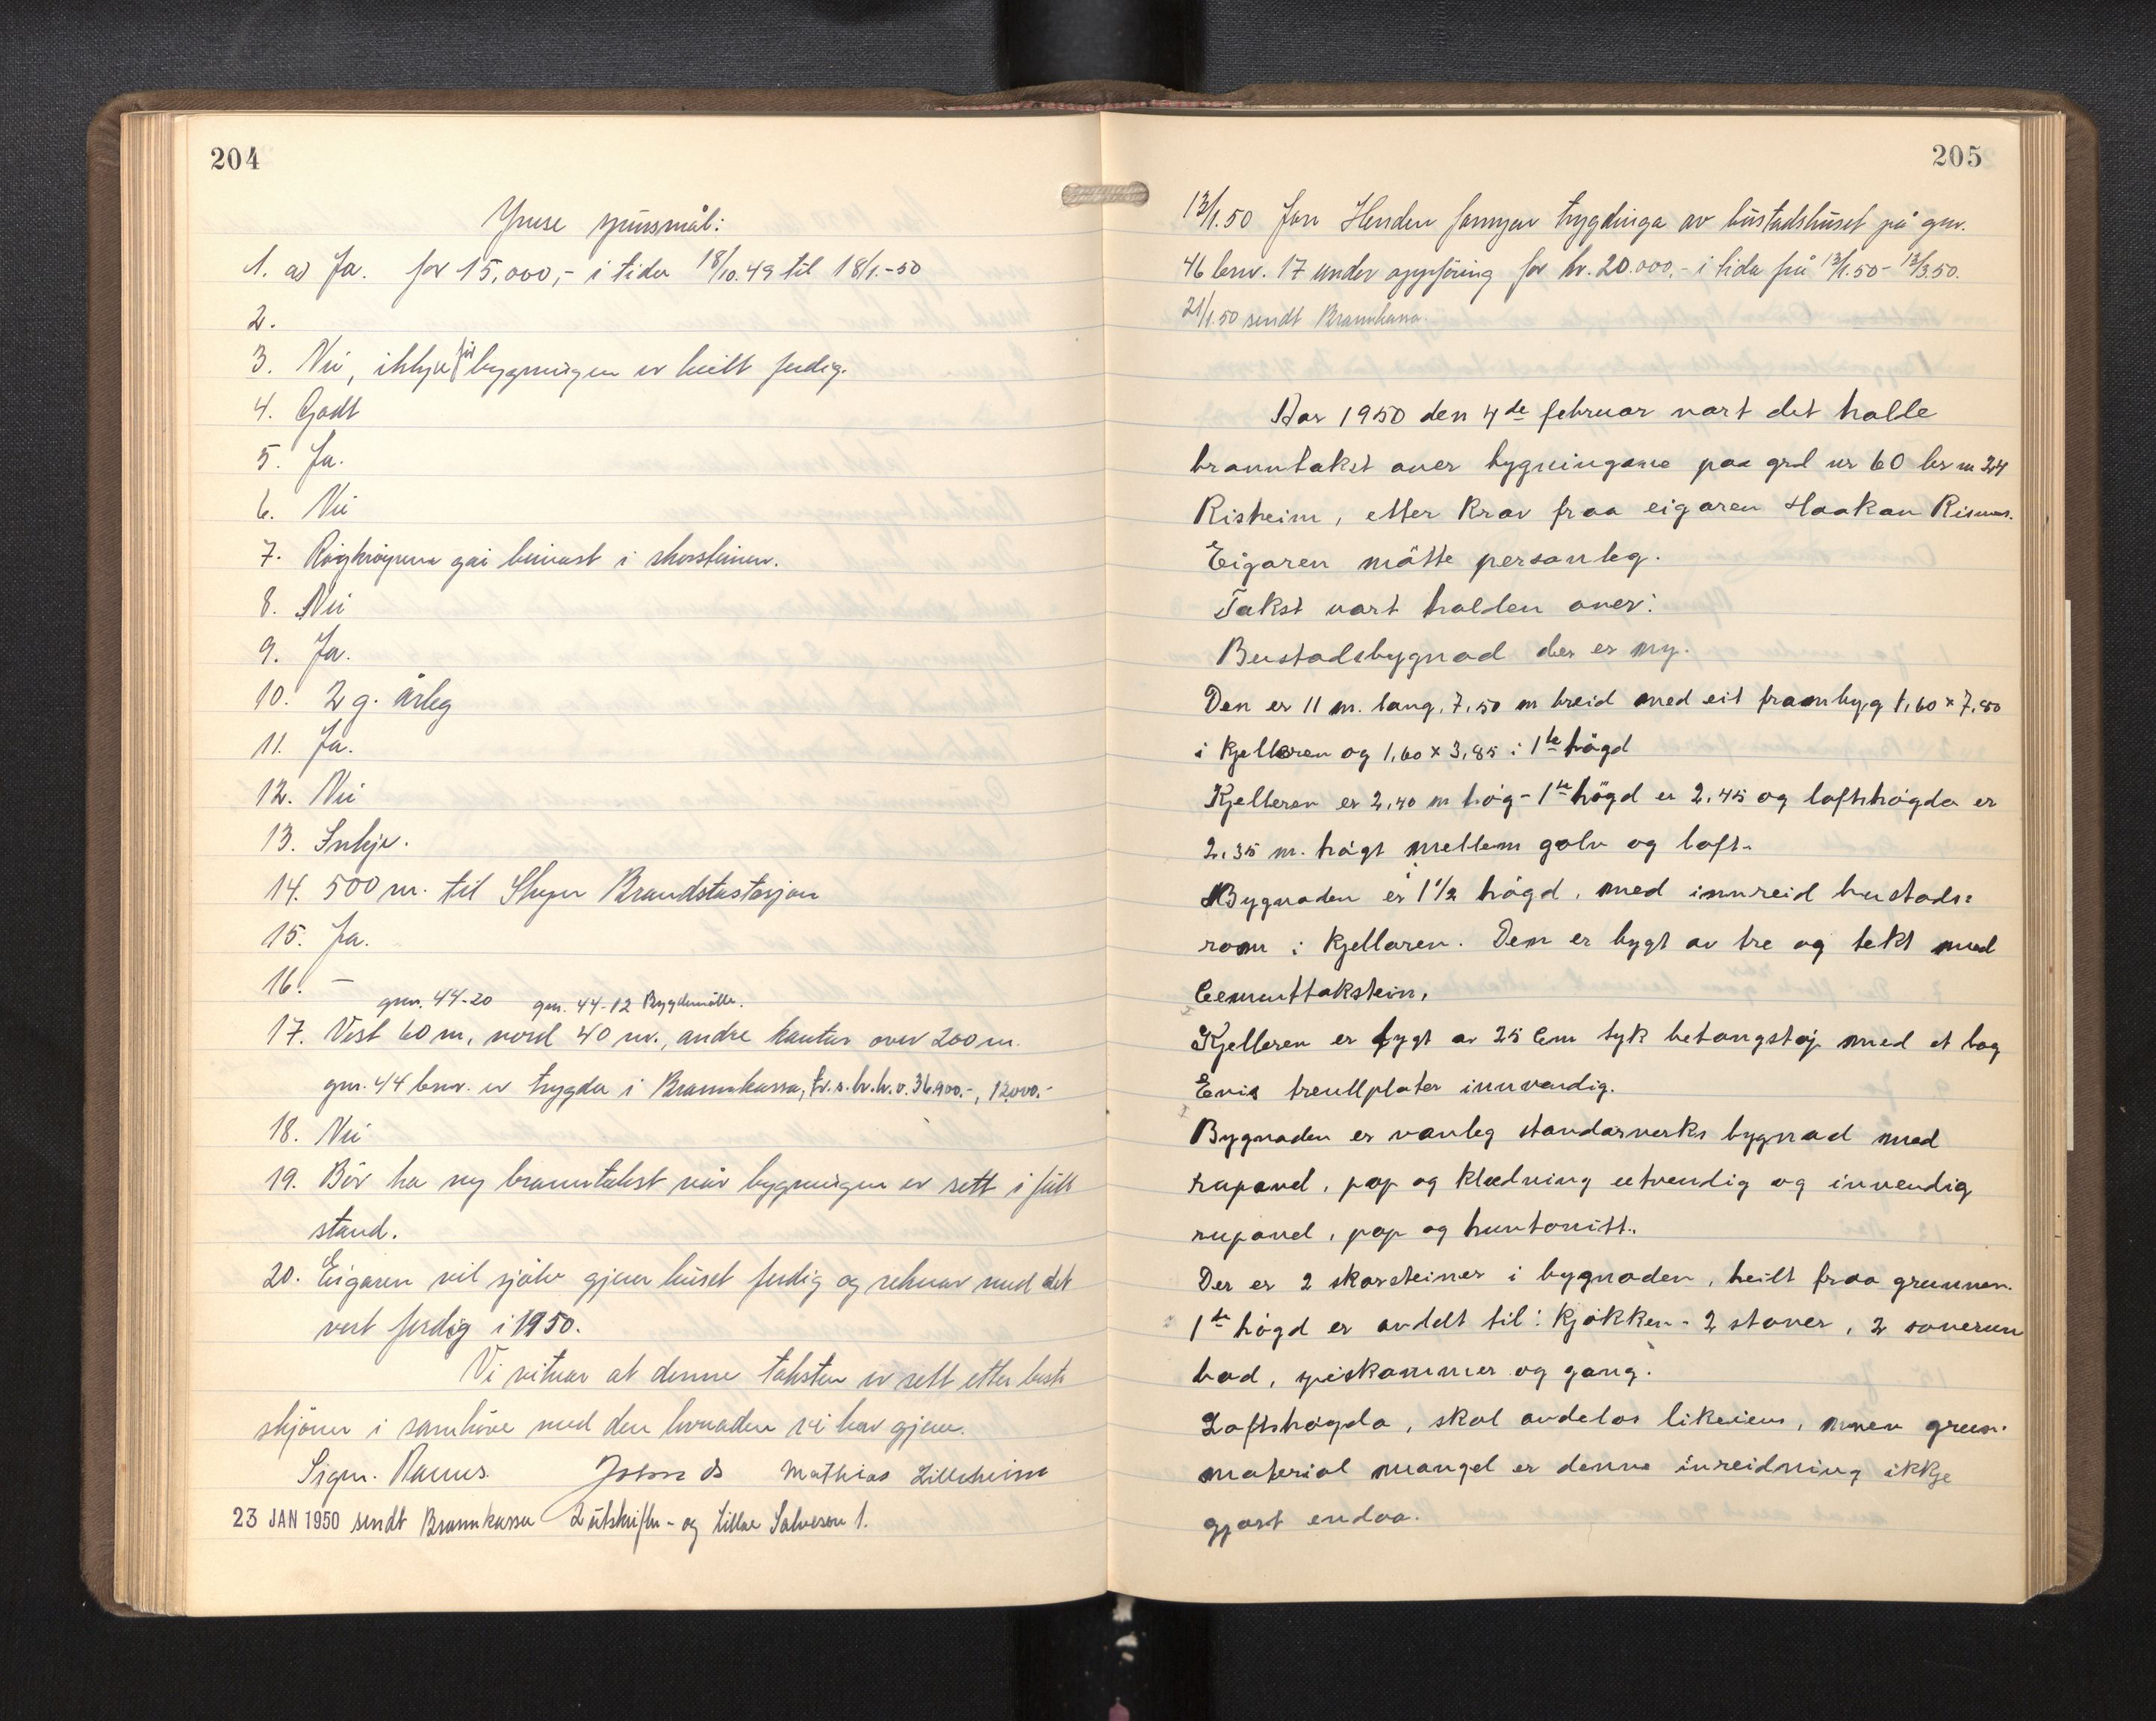 204
Ymse spursmål:
1. a) Ja. for 15.000,- i tida 18/10.49 til 18/1.-50
2.
3. Nei, ikkje før bygningen er heilt ferdig.
4. Godt
5. Ja.
6. Nei
7. Røykrøyrene går beinast i skorsteinen.
8. Nei
9. Ja.
10. 2 g. årleg
11. Ja.
12. Nei
13. Inkje.
14. 500 m. til Brandstastasjon
15. Ja.
16. –
gnr. 44-20 gnr. 44-12 Bygdemölle.
17. Vest 60 m, nord 40 m., andre kantar over 200 m.
gnr. 44 bnr. er trygda i Brannkassa, 36.900.-, 12.000.-
18. Nei
19. Bör ha ny branntakst når bygningen er sett i full
stand.
20. Eigaren vil sjölv gjera huset ferdig og reknar med det
vert ferdig i 1950.
Vi vitnar at denne taksten er sett etter beste
skjönn i samhöve med den lovnaden vi hev gjeve.
Sigm. Ramus. Mathias Lilleheim
23 JAN 1950 sendt Brannkassa 2 utskrifter - og 1.
205
13/1.50 Jon Henden fornyar trygdinga av bustadshuset på gnr.
46 bnr. 17 under oppföring for kr. 20.000,- i tida frå 13/1.50 - 13/3.50.
21/1.50 sendt Brannkassa.
Aar 1950 den 4de februar vart det halle
branntakst over bygningane paa grd nr 60 br nr 24
Risheim, etter krav fraa eigaren Haakon Risnes.
Eigaren mötte personleg.
Takst vart halden over:
Bustadsbygnad der er ny.
Den er 11 m. lang, 7,50 m breid med eit frambyg 1,60 x 7,50
i kjellaren og 1,60 x 3,85 i 1ste högd
Kjelleren er 2,40 m høg - 1ste högd er 2,45 og loftshøgda er
2,35 m. høgt mellem golv og loft.
Bygnaden er 1 1/2 høgd, med innreid bustads=
rom i kjellaren. Den er bygt av tre og tekt med
Cementtakstein.
Kjelleren er bygt av 25 Cm tyk betongstøp med et lag
Evis treullplater innvendig.
Bygnaden er vanleg standarverks bygnad med
rupanel, pap og klædning utvendig og invendig
rupanel, pap og huntonitt.
Der er 2 skorsteiner i bygnaden, heilt fraa grunnen.
1ste høgd er avdelt til: Kjøkken - 2 stover, 2 soverum
bad, spiskammer og gang.
Loftshøgda, skal avdelas likeeins, men grun.
material mangel er denne inreidning ikkje
gjort endaa.